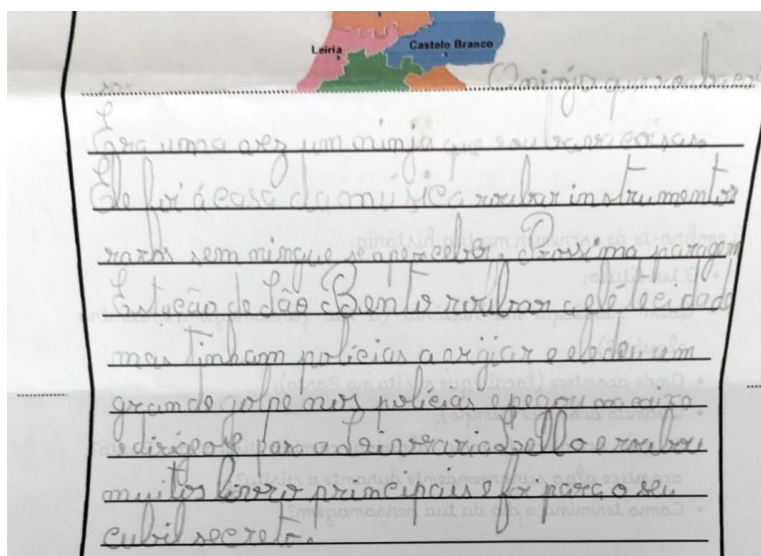 Leiria
Castelo Branco
O ninja que roubava
Era uma vez um ninja que roubava coisas.
Ele foi á casa da música roubar instrumentos
raros sem ningue se aperceber. Prossima paragem
Esteção de São Bento roubar a eletecidade
mas tinham polícias a vigiar e ele deu um
grande golpe nos polícias e pegou na
e dirigeose para a Leivraria Lello e roubou
muitos livros principais e foi para o seu
cubil secreto.